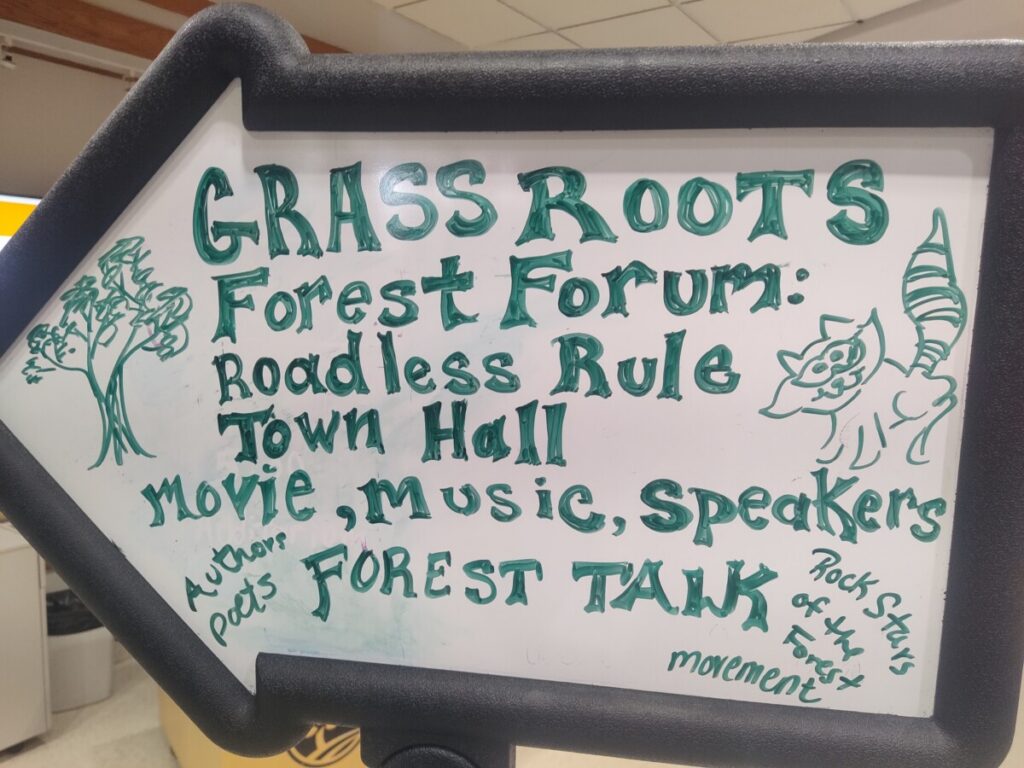 GRASS ROOTS
Forest Forum:
Roadless Rule
Town Hall
Movie, Music, Speakers
Authors
Poets
FOREST TALK
Rock Stars
of the
Forest
movement